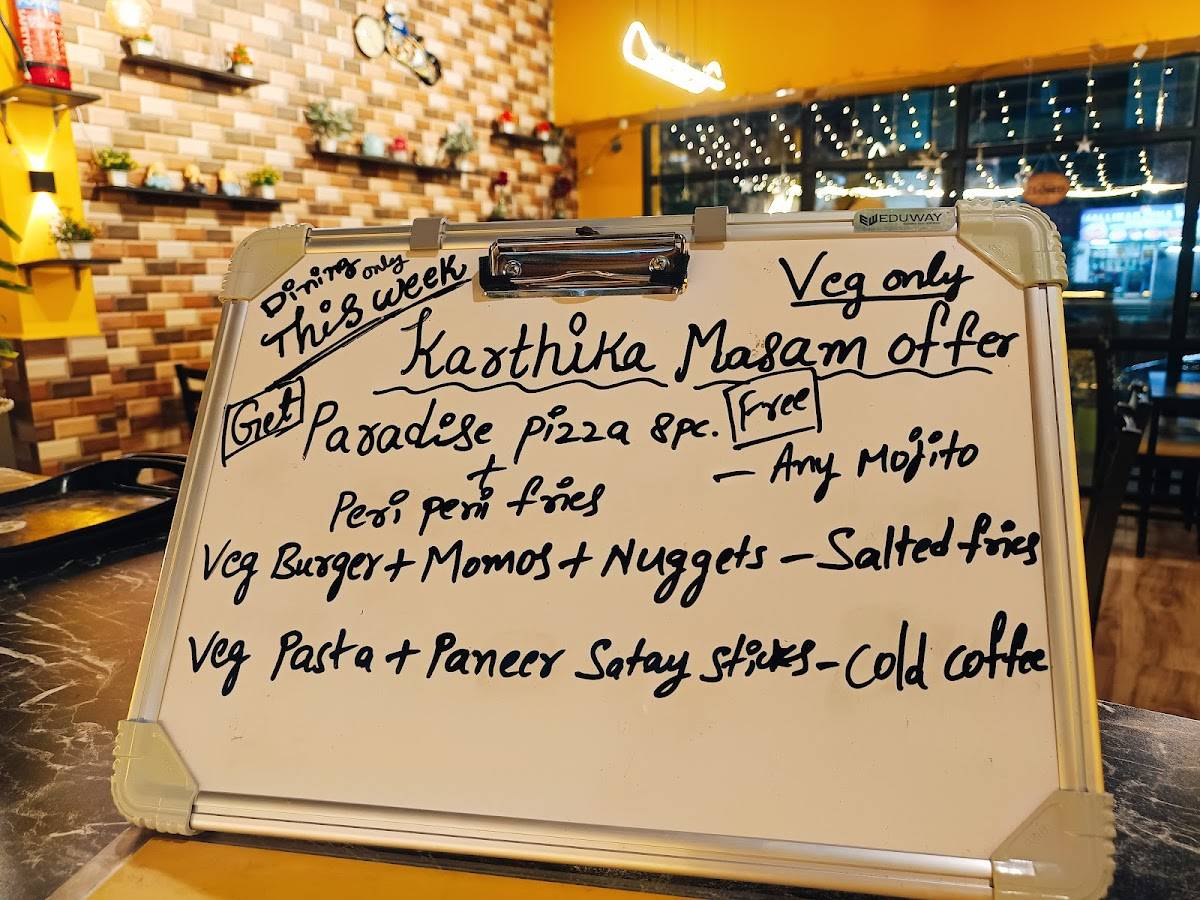 EDUWAY
Dining only
This week
Veg only
Karthika Masam offer
Get Paradise pizza 8pc. Free
+
Peri peri fries
- Any Mojito
Veg Burger + Momos + Nuggets - Salted fries
Veg Pasta + Paneer Satay Sticks - Cold coffee